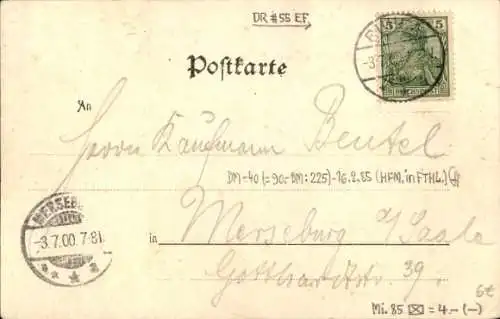 DR #55 EF.
5 5
Postkarte
An
Herrn Kaufmann Beutel
DM-40 (=90.-DM:225)-16.2.85 (HFM. in FTHL)
MERSEB
-3.7.00. 7-8
in Merseburg a/Saale
Gotthardtstr. 39.
6€
Mi. 85 = 4.- (-)